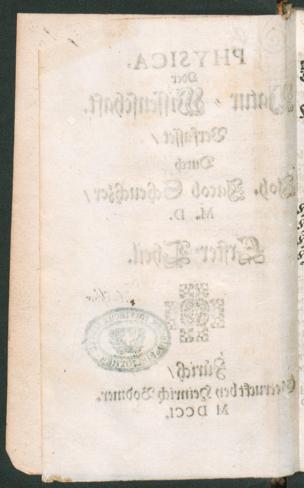 PHYSICA.
Oder
Natur-Wissenschafft.
Verfasset/
Durch
Joh. Jacob Scheuchzer/
M. D.
Erster Theil.
Zürich/
Getruckt bey Heinrich Bodmer.
M DCCI.